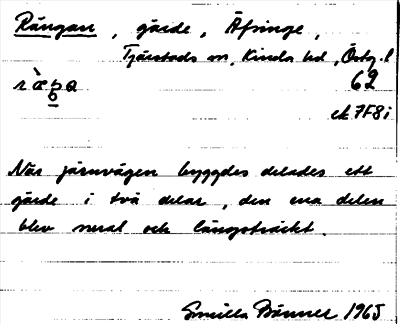 Rängan, gärde, Äfsinge,
Tjärstads sn, Kinda hd, Östg. l
62
ek 7F8i
När järnvägen byggdes delades ett
gärde i två delar, den ena delen
blev smal och långsträckt.
Gunilla Bänner 1965